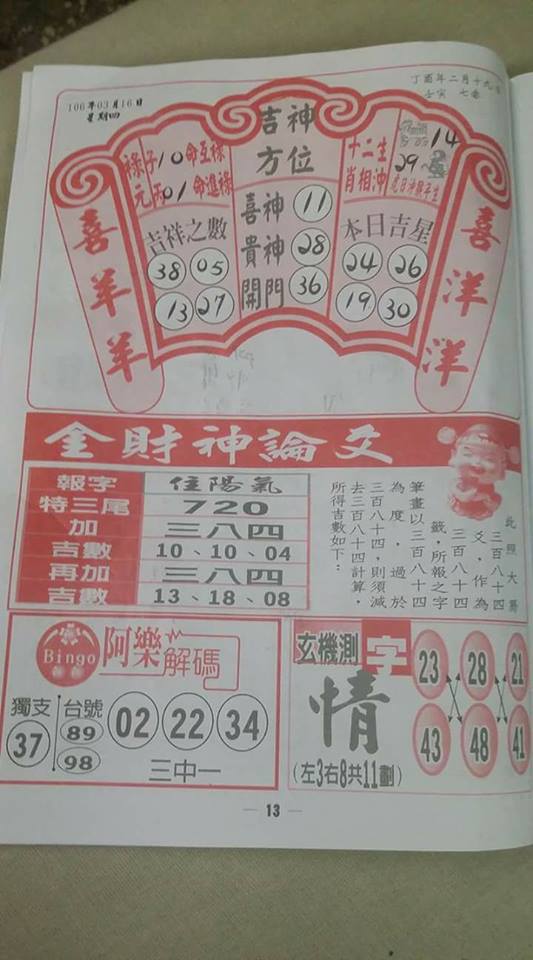 106年03月16日
星期四
丁酉年二月十九日
壬寅 七赤
吉神
方位
喜神 11
貴神 28
開門 36
祿子10命互祿
元丙01命進祿
吉祥之數
38 05
13 27
十二生
肖相沖
14
29
本日吉星
24 26
19 30
喜羊羊
喜洋洋
金財神論爻
報字 住陽氣
特三尾 720
加 三八四
吉數 10、10、04
再加 三八四
吉數 13、18、08
此照大易
三百八十四
爻,作為
三百八十四
籤,所報之字
筆畫以三百八十四
為度,過於
三百八十四,則須減
去三百八十四計算,
所得吉數如下:
Bingo
阿樂解碼
獨支 台號
37 89 98
02 22 34
三中一
玄機測字
情
(左3右8共11劃)
23 28 21
43 48 41
13